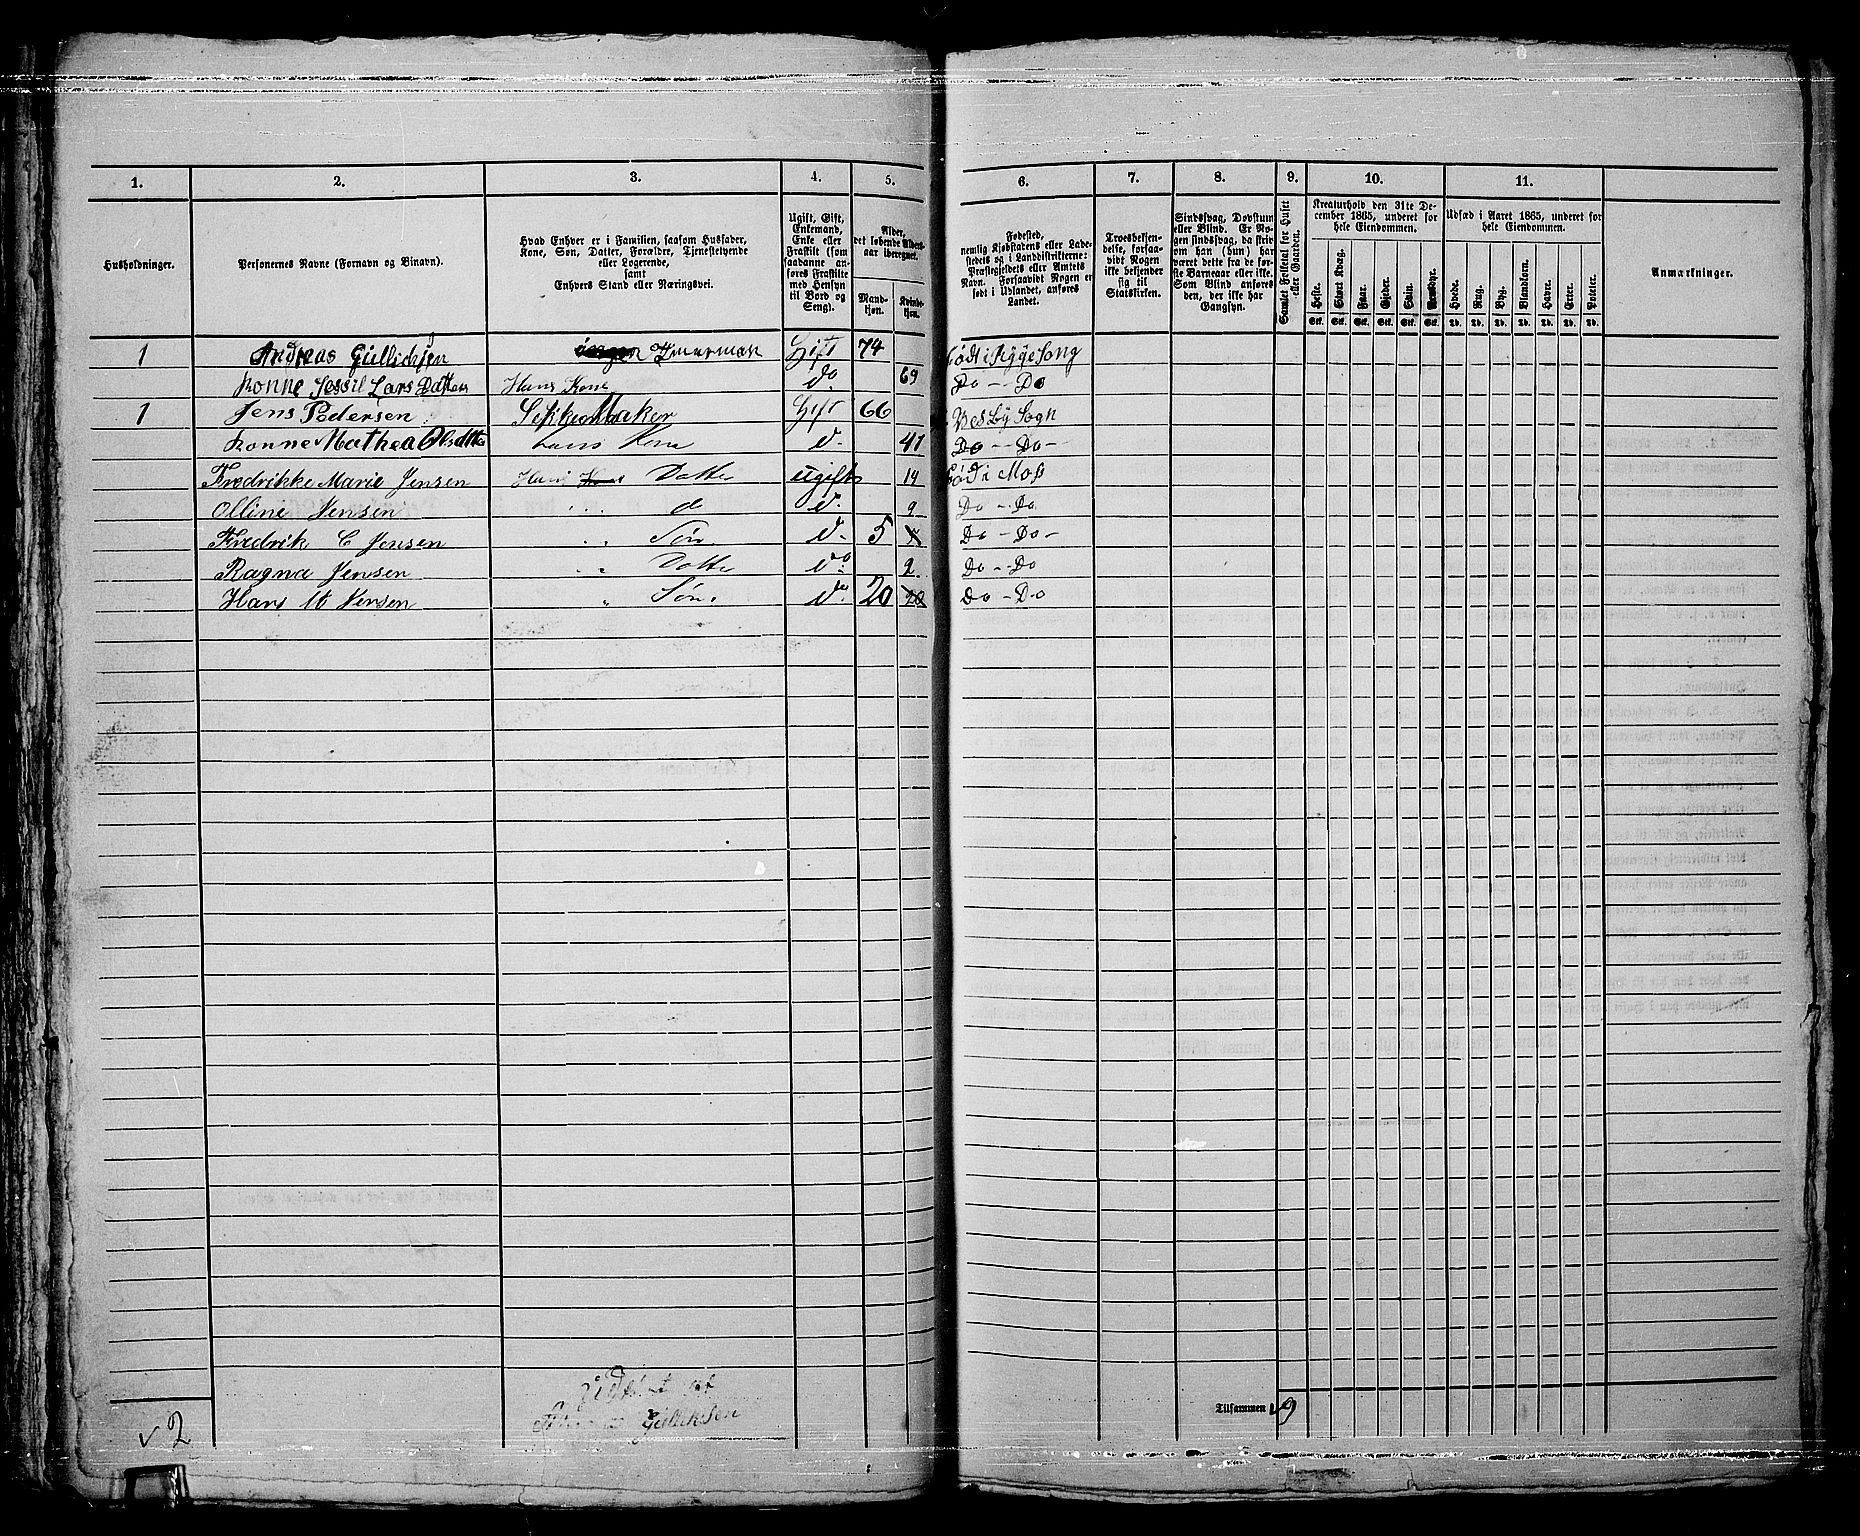 1. 2. 3. 4. 5. 6. 7. 8. 9. 10. 11.
Husholdninger.
Personernes Navne (Fornavn og Binavn).
Hvad Enhver er i Familien, saasom Husfader,
Kone, Søn, Datter, Forældre, Tjenestetyende
eller Logerende,
samt
Enhvers Stand eller Næringsvei.
Ugift, Gift,
Enkemand,
Enke eller
Fraskilt (som
saadanne an-
føres Fraskilte
med Hensyn
til Bord og
Seng).
Alder,
det løbende Alders-
aar iberegnet.
Mand-
kjøn.
Kvinde-
kjøn.
Fødested,
nemlig Kjøbstadens eller Lade-
stedets og i Landdistrikterne:
Præstegjeldets eller Amtets
Navn. Forsaavidt Nogen er
født i Udlandet, anføres
Landet.
Troesbekjen-
delse, forsaa-
vidt Nogen
ikke bekjender
sig til
Statskirken.
Sindssvag, Døvstum
eller Blind. Er No-
gen sindssvag, da skriv
om han (hun) har
været dette fra de før-
ste Barneaar eller ikke.
Som Blind anføres
den, der ikke har
Gangsyn.
Samlet Folketal for Huset
eller Gaarden.
Kreaturhold den 31te De-
cember 1865, underet for
hele Eiendommen.
Heste. Stort Kvæg. Faar. Gjeder. Sviin. Rensdyr.
Stk. Stk. Stk. Stk. Stk. Stk.
Udsæd i Aaret 1865, underet for
hele Eiendommen.
Hvede. Rug. Byg. Blandkorn. Havre. Erter. Poteter.
Td. Td. Td. Td. Td. Td. Td.
Anmærkninger.
1 Andreas Gullichsen Gift 74 født i Rygge Song
konne Sessil Lars Datter Hans Kone do 69 Do - - Do
1 Jens Pedersen Gift 66 Vesby Sogn
konne Mathea Hans Kone d- 41 Do - - Do -
Fredrikke Marie Jensen Hans Datter ugift 14 Född i Moss
Olline Jensen d d- 9 Do - Do
Fredrik C Jensen Søn d- 5 Do - Do -
Ragna Jensen Datter do 2 Do - Do
Hans M Jensen Søn do 20 20 Do - Do
Gullichsen
Tilsammen 9
v 2